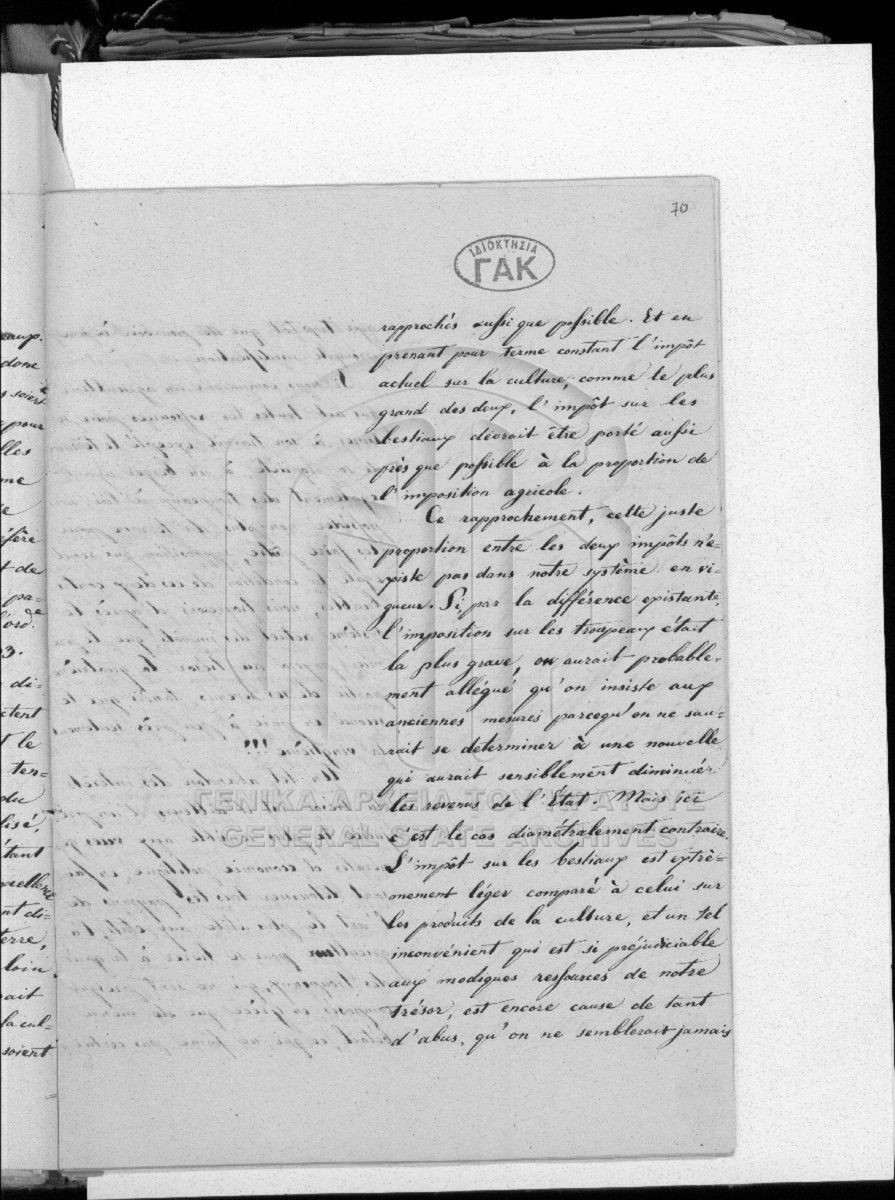 70
ΙΔΙΟΚΤΗΣΙΑ
ΓΑΚ
rapprochés aussi que possible. Et en
prenant pour terme constant l'impôt
actuel sur la culture, comme le plus
grand des deux, l'impôt sur les
bestiaux devrait être porté aussi
près que possible à la proportion de
l'imposition agricole.
Ce rapprochement, cette juste
proportion entre les deux impôts n'e-
xiste pas dans notre système en vi-
gueur. Si, par la différence existante,
l'imposition sur les troupeaux était
la plus grave, on aurait probable-
ment allégué qu'on insiste aux
anciennes mesures parcequ'on ne sau-
rait se determiner à une nouvelle
qui aurait sensiblement diminuér
les revenus de l'État. Mais ici
c'est le cas diamétralement contraire.
L'impôt sur les bestiaux est extrè-
mement léger comparé à celui sur
les produits de la culture, et un tel
inconvénient qui est si préjudiciable
aux modiques ressources de notre
trésor, est encore cause de tant
d'abus, qu'on ne semblerait jamais
ΓΕΝΙΚΑ ΑΡΧΕΙΑ ΤΟΥ ΚΡΑΤΟΥΣ
GENERAL STATE ARCHIVES
eaux.
donc
s soient
pour
lles
me
éfère
t de
pa-
l'ord.
3.
di-
ctent
t le
ten-
du
lisé,
étant
nt di-
terre,
loin
rait
la cul-
soient